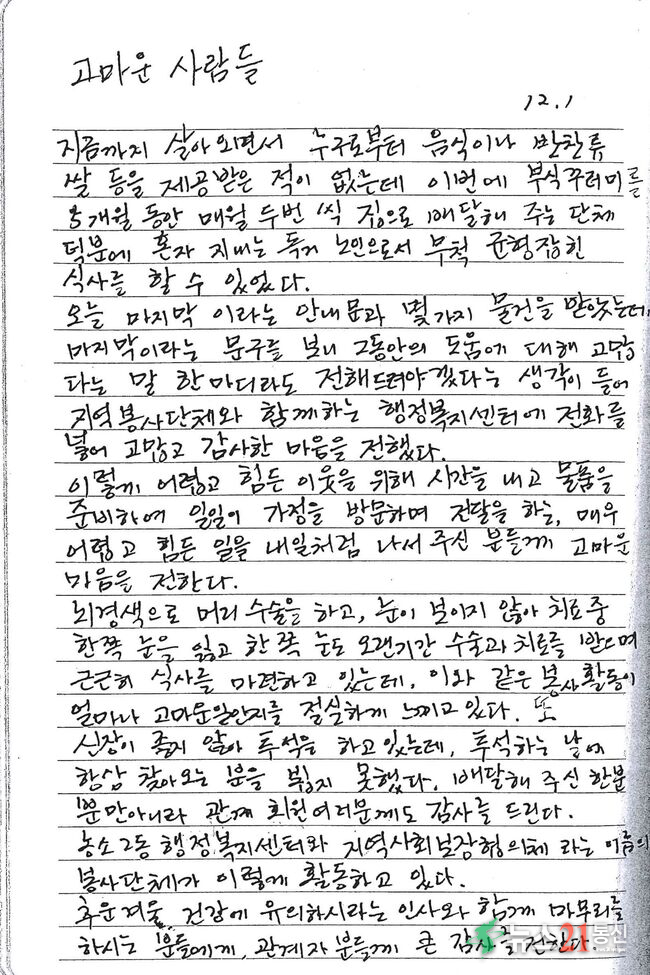 고마운 사람들
12.1
지금까지 살아오면서 누구로부터 음식이나 반찬류
쌀 등을 제공받은 적이 없는데 이번에 부식꾸러미를
5개월 동안 매월 두번 씩 집으로 배달해 주는 단체
덕분에 혼자 지내는 독거 노인으로서 무척 균형잡힌
식사를 할 수 있었다.
오늘 마지막 이라는 안내문과 몇가지 물건을 받았는데,
마지막이라는 문구를 보니 그동안의 도움에 대해 고맙
다는 말 한마디라도 전해드려야겠다는 생각이 들어
지역봉사단체와 함께하는 행정복지센터에 전화를
넣어 고맙고 감사한 마음을 전했다.
이렇게 어렵고 힘든 이웃을 위해 시간을 내고 물품을
준비하여 일일이 가정을 방문하며 전달을 하는, 매우
어렵고 힘든 일을 내일처럼 나서 주신 분들께 고마운
마음을 전한다.
뇌경색으로 머리 수술을 하고, 눈이 보이지 않아 치료중
한쪽 눈을 잃고 한쪽 눈도 오랜기간 수술과 치료를 받으며
근근히 식사를 마련하고 있는데, 이와 같은 봉사활동이
얼마나 고마운일인지를 절실하게 느끼고있다. 또
신장이 좋지 않아 투석을 하고있는데, 투석하는 날에
항상 찾아오는 분을 뵙지 못했다. 배달해 주신 한분
뿐만아니라 관계 회원여러분께도 감사를 드린다.
농소2동 행정복지센터와 지역사회보장협의체 라는 이름의
봉사단체가 이렇게 활동하고 있다.
추운겨울 건강에 유의하시라는 인사와 함께 마무리를
하시는 분들에게, 관계자 분들께 큰 감사를 전한다
뉴스21통신